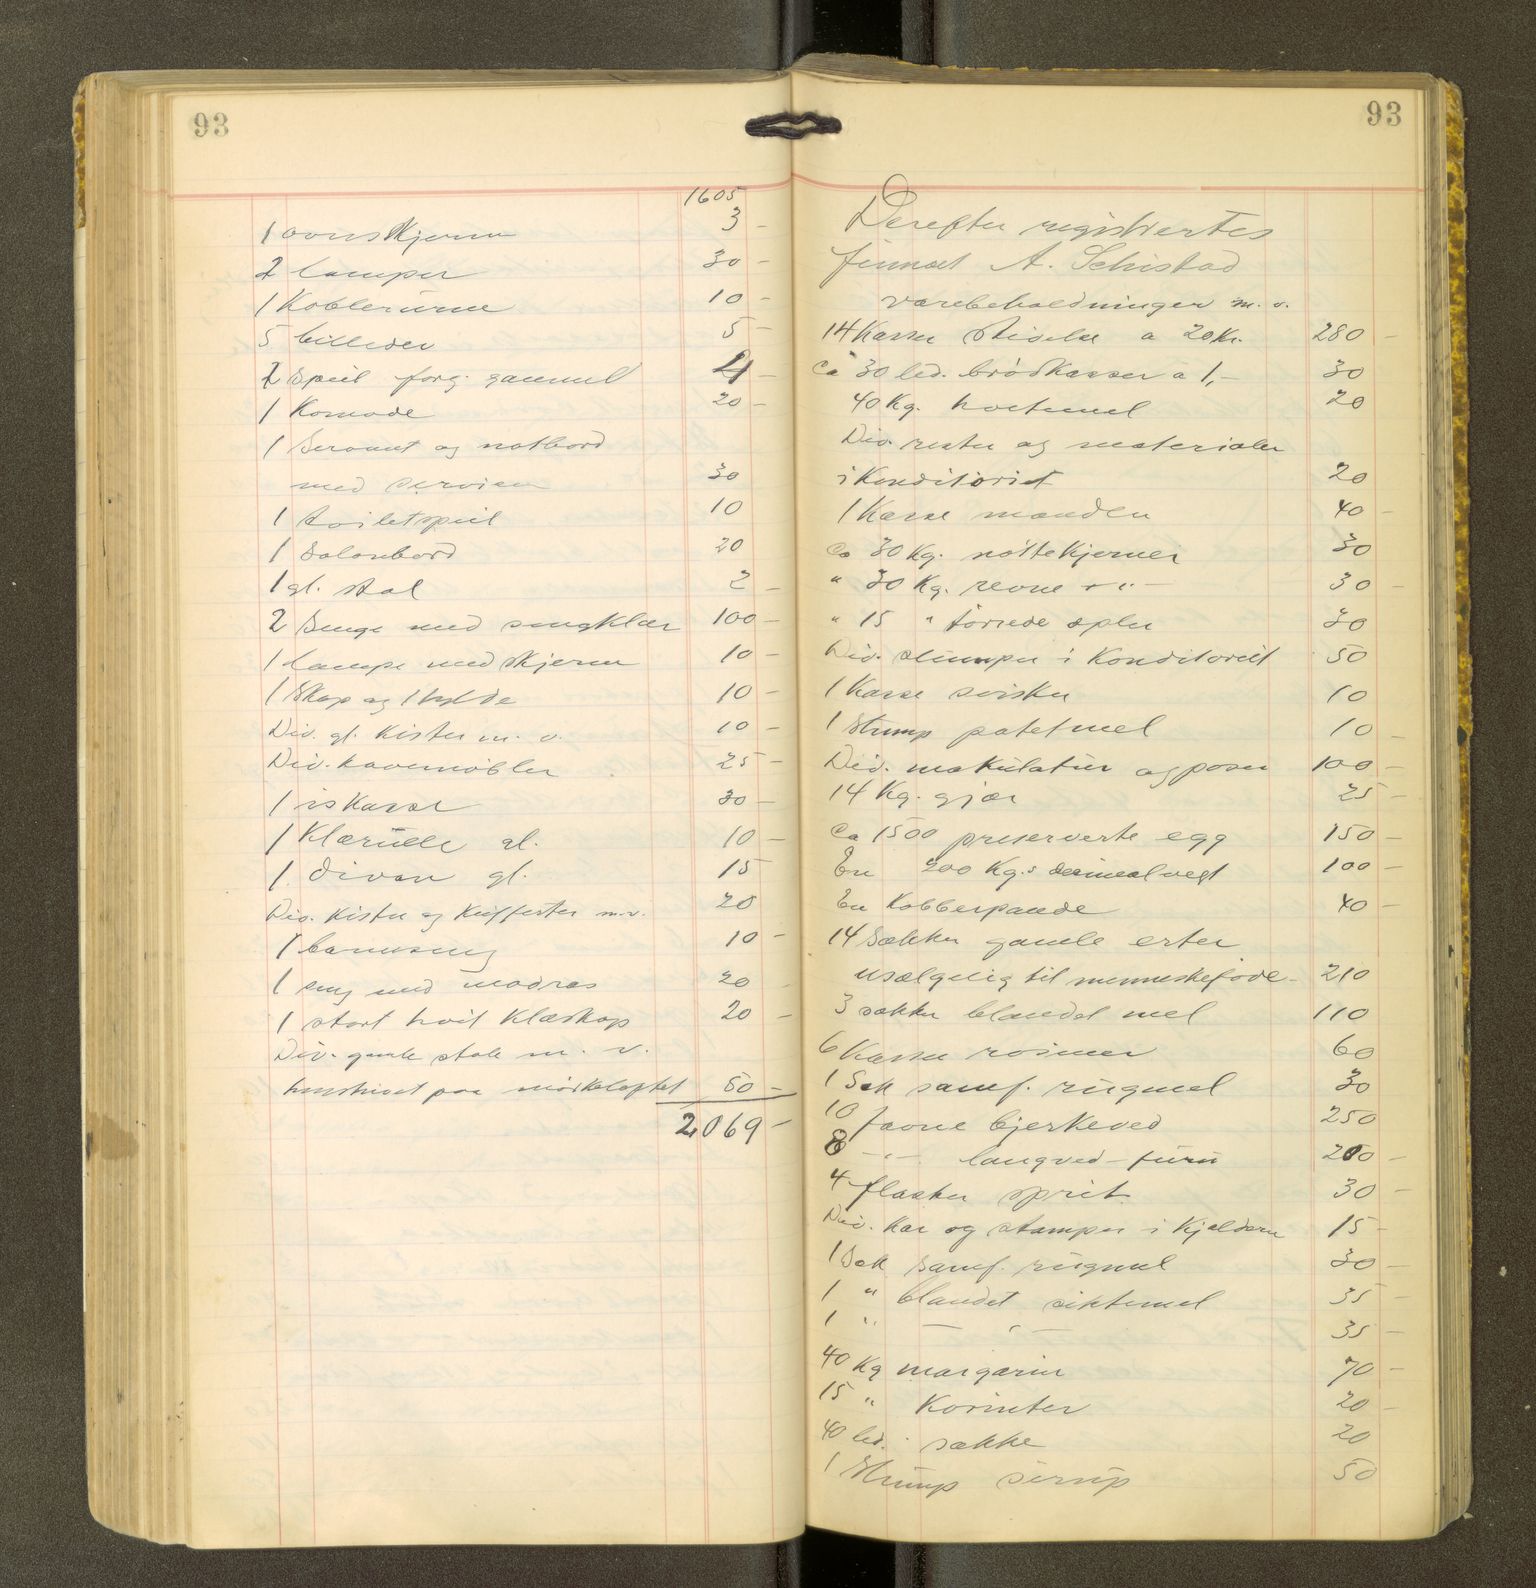 93
1605
1 ovnskjerm 3 -
2 lamper 30 -
1 Koblerurne 10 -
5 billeder 5 -
2 speil forg. gammel 4 -
1 Komode 20 -
1 Servant og natbord
med servise 30
1 toiletspeil 10
1 Salonbord 20
1 gl. stol 2 -
2 Senge med sengklær 100 -
1 lampe med skjerm 10 -
1 Skap og 1 hylde 10 -
Div. gl. kister m. v. 10 -
Div. havemøbler 25 -
1 iskasse 30 -
1 Klærulle gl. 10 -
1 divan gl. 15
Div. Kister og Kufferter m.v. 20
1 barneseng 10 -
1 seng med madras 20
1 stort hvit klæskap 20 -
Div. gamle stole m. v.
henstivet paa mørkeloftet 50 -
2069 -
93
Derefter registrertes
firmaet A. Schistad
varebeholdninger m. v.
14 Kasser Stivelse a 20 Kr. 280 -
Ca 30 led. brødkasser a 1,- 30
40 Kg. hvetemel 20
Div. rester og materialer
i Konditoriet 20
1 Kasse mandler 40 -
Ca 30 Kg. nøttekjerner 30
" 30 Kg. revne - " - 30 -
" 15 " tørrede epler 30
Div. slumper i Konditoriet 50
1 Kasse svisker 10
1 Slump potetmel 10 -
Div. makulatur og poser 100 -
14 Kg. gjær 25 -
Ca 1500 preserverte egg 150 -
En 200 Kg.s decimalvegt 100 -
En Kobberpande 40 -
14 Sækker gamle erter
usælgelig til menneskeføde - 210
3 sækker blandet mel 110
6 Kasser rosiner 60
1 Sek samf. rugmel 30
10 favne bjerkeved 250
8 - " - langved - furu 200 -
4 flasker sprit 30 -
Div. Kar og stamper i Kjelderen 15 -
1 Sek samf. rugmel 30 -
1 " blandet siktemel 35 -
1 " - " - 35 -
40 Kg margarin 70 -
15 " Korinter 20 -
40 led. sække 20
1 Slump sirup 50